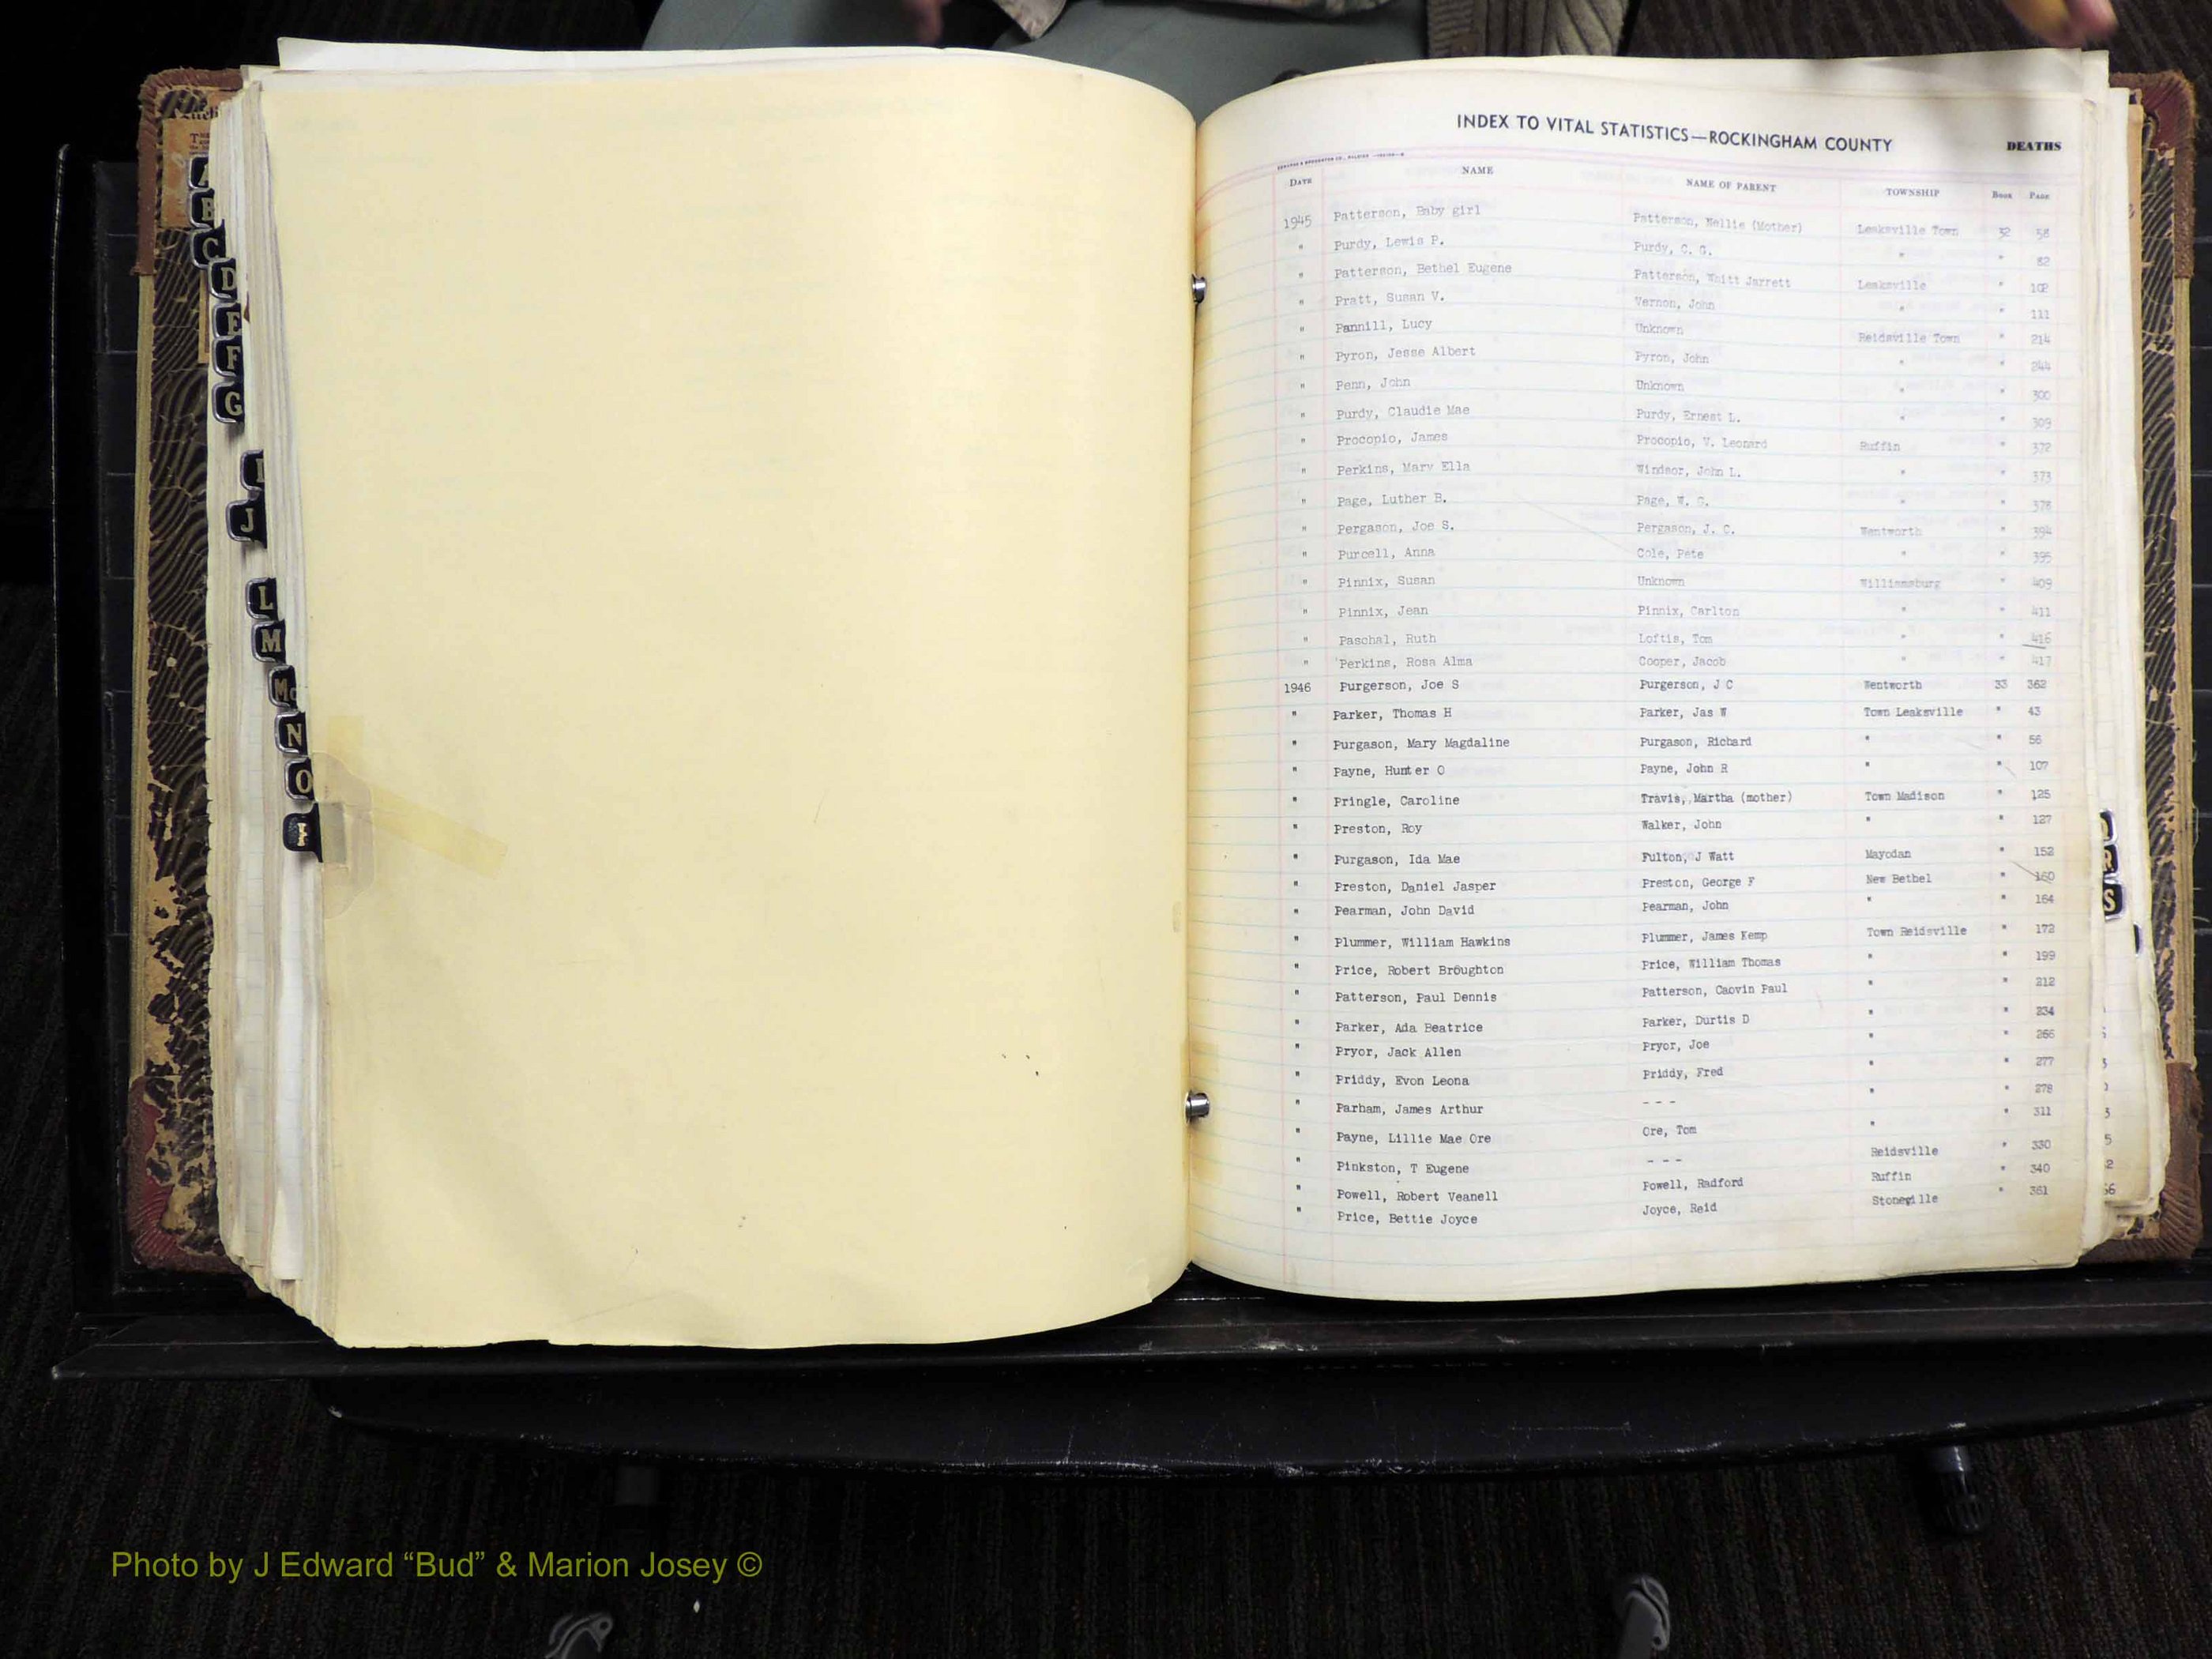 A
B
C
D
E
F
G
I
J
L
M
Mc
N
O
P
INDEX TO VITAL STATISTICS—ROCKINGHAM COUNTY DEATHS
DATE NAME NAME OF PARENT TOWNSHIP BOOK PAGE
1945 Patterson, Baby girl Patterson, Nellie (Mother) Leaksville Town 32 58
" Purdy, Lewis P. Purdy, C. G. " " 82
" Patterson, Bethel Eugene Patterson, Whitt Jarrett Leaksville " 102
" Pratt, Susan V. Vernon, John " " 111
" Pannill, Lucy Unknown Reidsville Town " 214
" Pyron, Jesse Albert Pyron, John " " 244
" Penn, John Unknown " " 300
" Purdy, Claudie Mae Purdy, Ernest L. " " 309
" Procopio, James Procopio, V. Leonard Ruffin " 372
" Perkins, Mary Ella Windsor, John L. " " 373
" Page, Luther B. Page, W. G. " " 378
" Pergason, Joe S. Pergason, J. C. Wentworth " 394
" Purcell, Anna Cole, Pete " " 395
" Pinnix, Susan Unknown Williamsburg " 409
" Pinnix, Jean Pinnix, Carlton " " 411
" Paschal, Ruth Loftis, Tom " " 416
" Perkins, Rosa Alma Cooper, Jacob " " 417
1946 Purgerson, Joe S Purgerson, J C Wentworth 33 362
" Parker, Thomas H Parker, Jas W Town Leaksville " 43
" Purgason, Mary Magdaline Purgason, Richard " " 56
" Payne, Hunter O Payne, John R " " 107
" Pringle, Caroline Travis, Martha (mother) Town Madison " 125
" Preston, Roy Walker, John " " 127
" Purgason, Ida Mae Fulton, J Watt Mayodan " 152
" Preston, Daniel Jasper Preston, George F New Bethel " 160
" Pearman, John David Pearman, John " " 164
" Plummer, William Hawkins Plummer, James Kemp Town Reidsville " 172
" Price, Robert Broughton Price, William Thomas " " 199
" Patterson, Paul Dennis Patterson, Caovin Paul " " 212
" Parker, Ada Beatrice Parker, Durtis D " " 234
" Pryor, Jack Allen Pryor, Joe " " 266
" Priddy, Evon Leona Priddy, Fred " " 277
" Parham, James Arthur - - - " " 278
" Payne, Lillie Mae Ore Ore, Tom " " 311
" Pinkston, T Eugene - - - Reidsville " 330
" Powell, Robert Veanell Powell, Radford Ruffin " 340
" Price, Bettie Joyce Joyce, Reid Stoneville " 361
R
S
Photo by J Edward “Bud” & Marion Josey ©